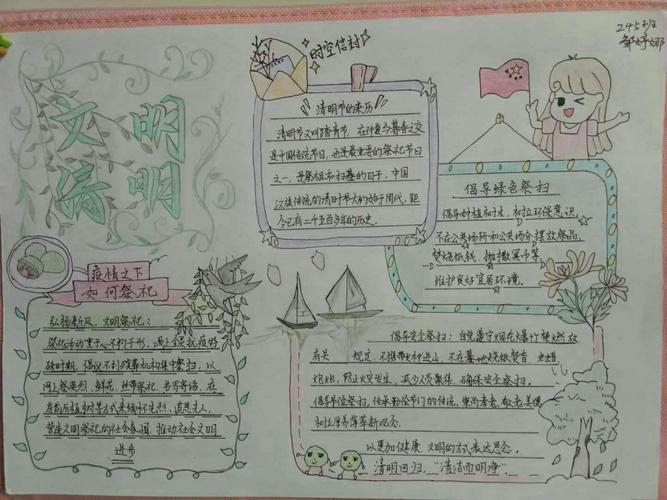 245班
文明
清明
时空信封
清明节的来历
清明节又叫踏青节，在仲春与暮春之交
是中国传统节日，也是最重要的祭祀节日
之一，是祭祖和扫墓的日子，中国
汉族传统的清明节大约始于周代，距
今已有二千五百多年的历史。
倡导绿色祭扫
倡导种植树木，树立环保意识，
不在公共场所和公共场合摆放祭品，
焚烧纸钱、抛撒冥币等
维护良好宜居环境。
疫情之下
如何祭祀
弘扬新风，文明祭祀：
祭祀活动重于心不拘于形，遇上全民抗疫特
殊时期，倡议不到殡葬机构集中祭扫，以
网上祭英烈，鲜花，丝带祭祀，书写寄语，在
房前后植树等方式来缅怀先烈，追思先人，
营造文明祭祀的社会氛围，推动社会文明
进步
倡导安全祭扫：自觉遵守烟花爆竹禁燃放
有关 规定，不携带火种进山，不在墓地烧纸焚香 点蜡
烛炮，防止火灾发生，减少人员聚集，确保安全祭扫。
倡导节俭祭扫，传承勤俭节约的传统，崇尚孝老、敬老美德
树立厚养薄葬新观念
以更加健康、文明的方式表达思念。
清明回归，“清洁而明净”